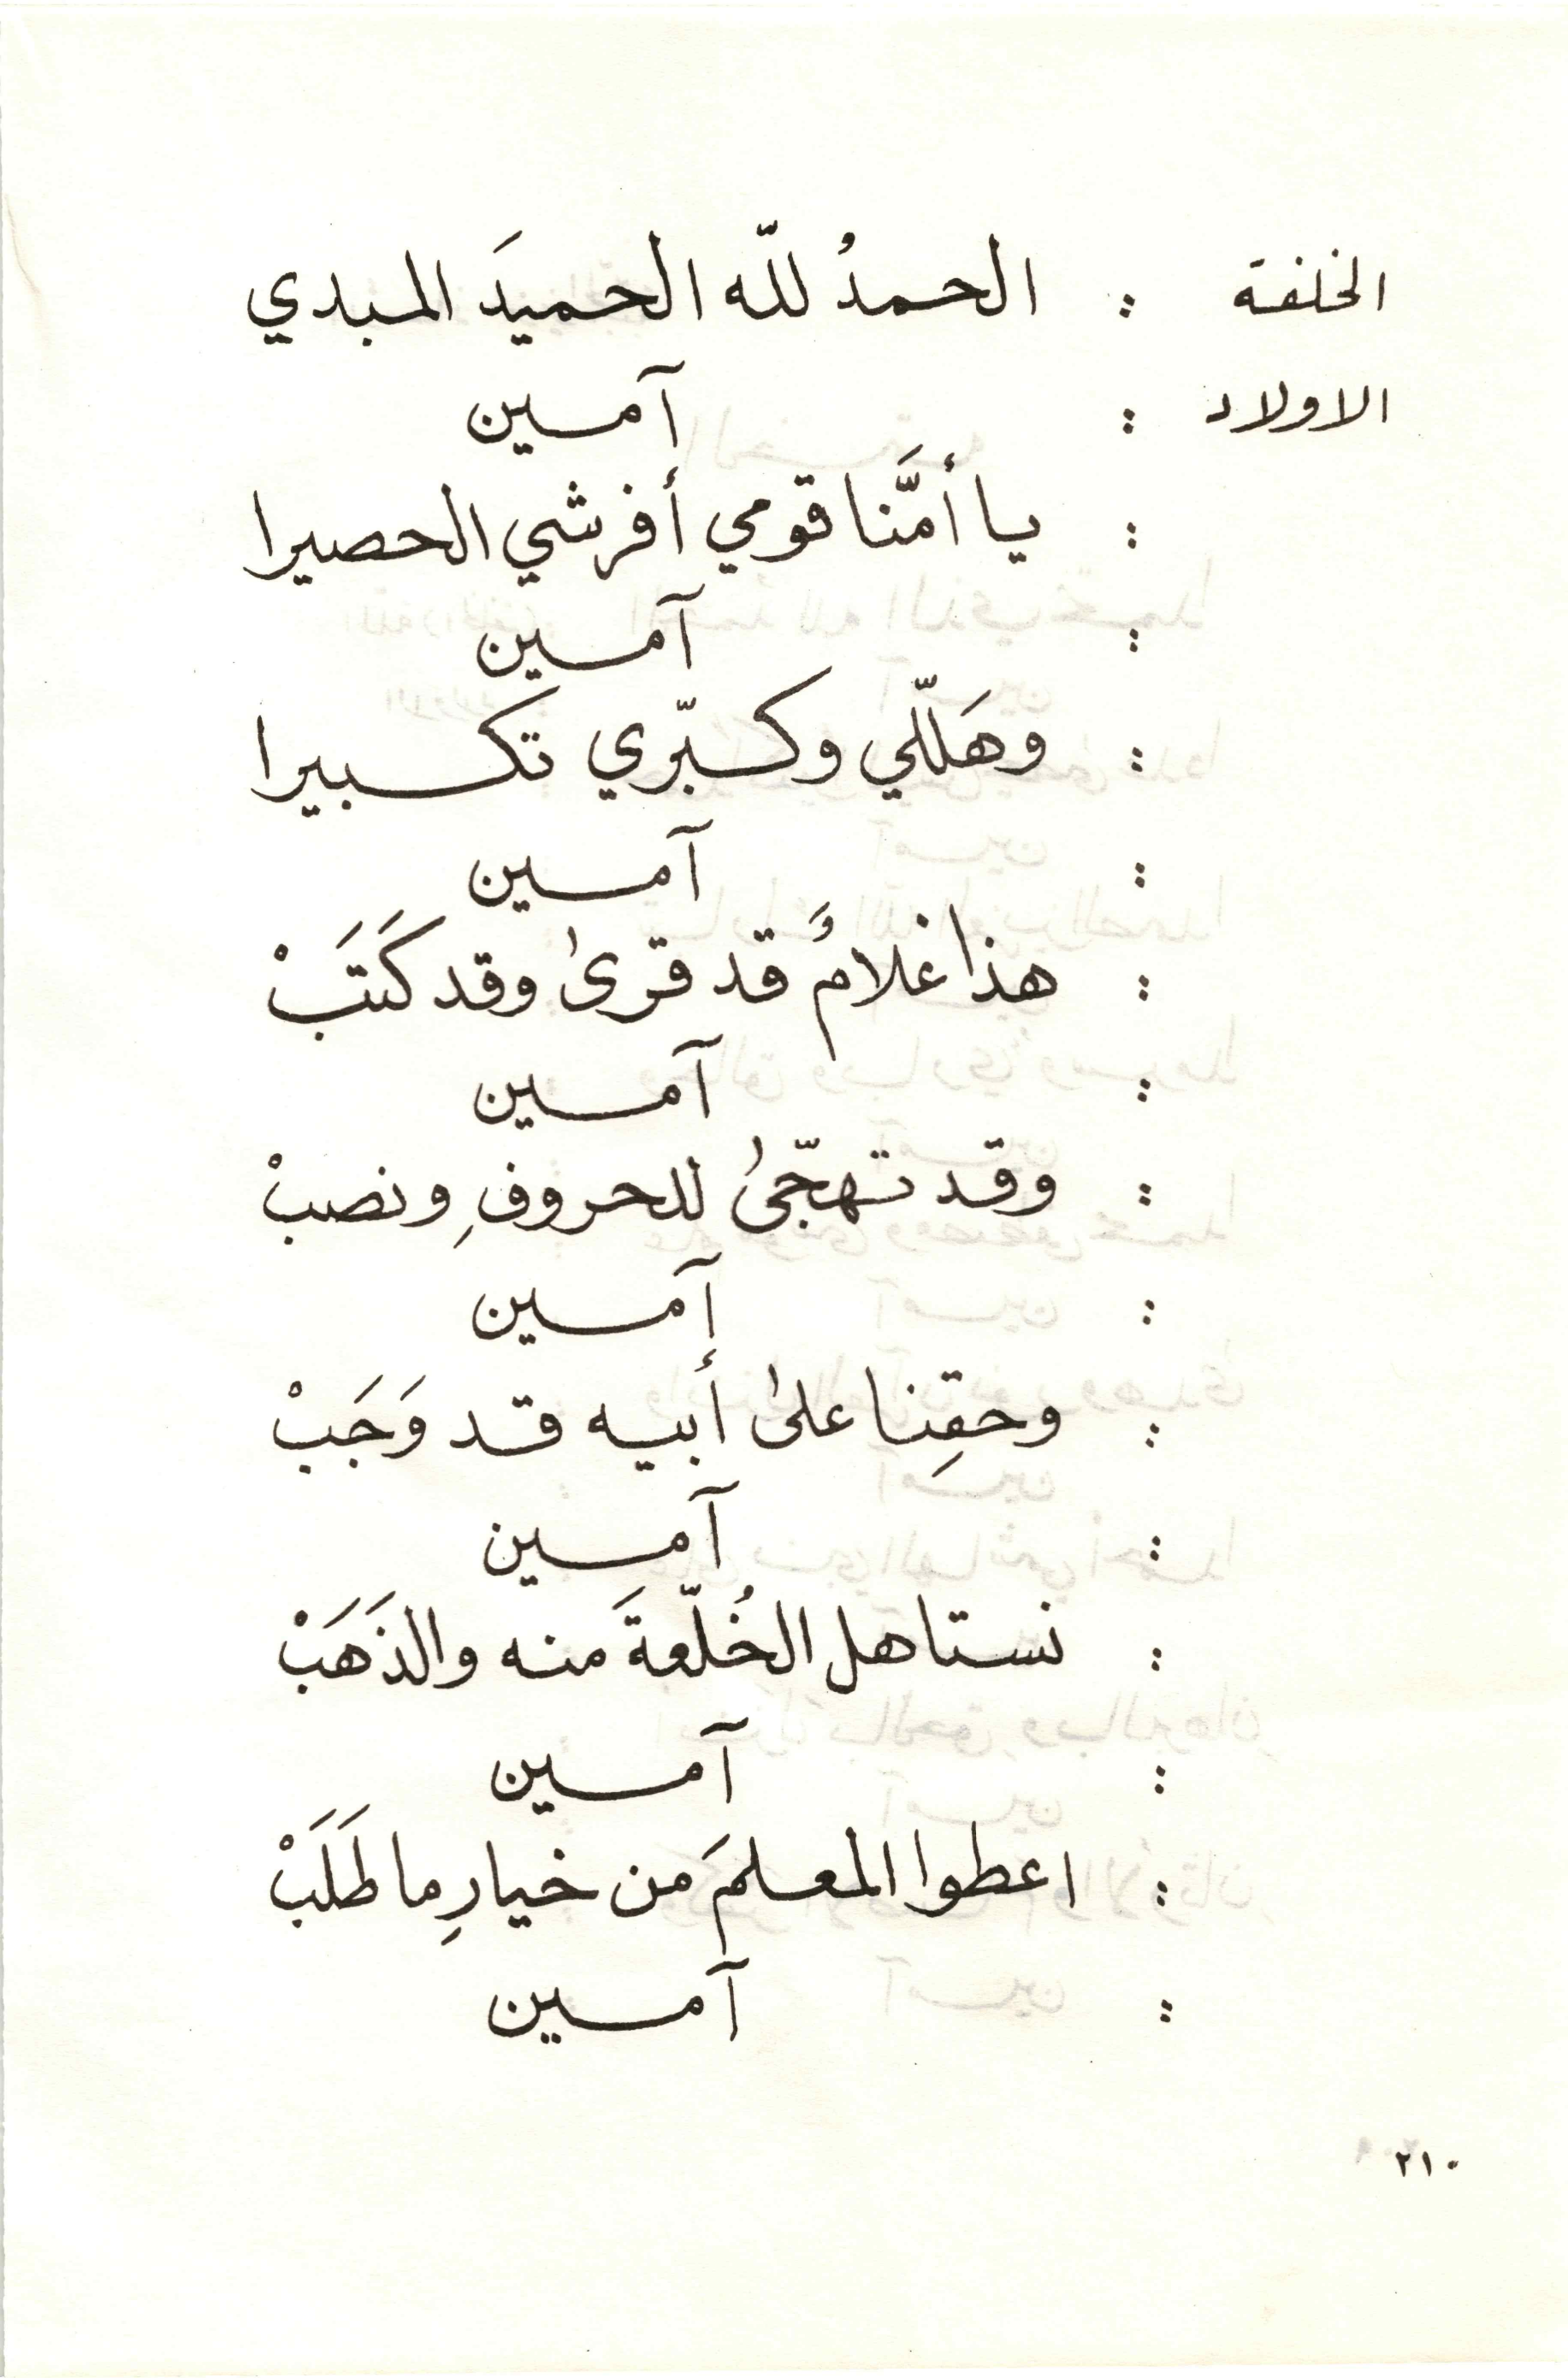 الخلفة : الحمدُ للّه الحميدَ المبدي
الاولاد : آمين
: يا أمَّنا قومي أفرشي الحصيرا
: آمين
: وهَللّي وكبّري تكبيرا
: آمين
: هذا غلامٌ قد قرىٰ وقد كَتَبْ
: آمين
: وقد تهجّىٰ للحروفِ ونصبْ
: آمين
: وحقِنا علىٰ أبيه قد وَجَبْ
: آمين
: نستاهل الخُلّعةَ منه والذَهَبْ
: آمين
: اعطوا المعلمَ من خيارِ ما طَلَبْ
: آمين
٢١٠